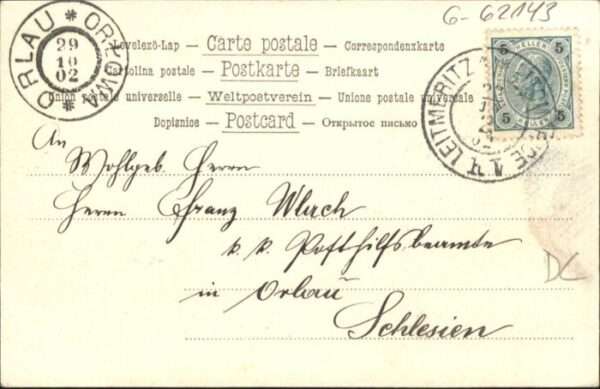 G-62143
ORLAU * ORŁOWA *
29
10
02
Levelező-Lap — Carte postale — Correspondenzkarte
Cartolina postale — Postkarte — Briefkaart
Union postale universelle — Weltpostverein — Unione postale universale
Dopisnice — Postcard — Открытое письмо
5 HELLER 5
5 5
LEITMERITZ
An
Wohlgeb. Herrn
Herrn Franz Wlach
k. k. Posthilfsbeamte
in Orlau
Schlesien
DC